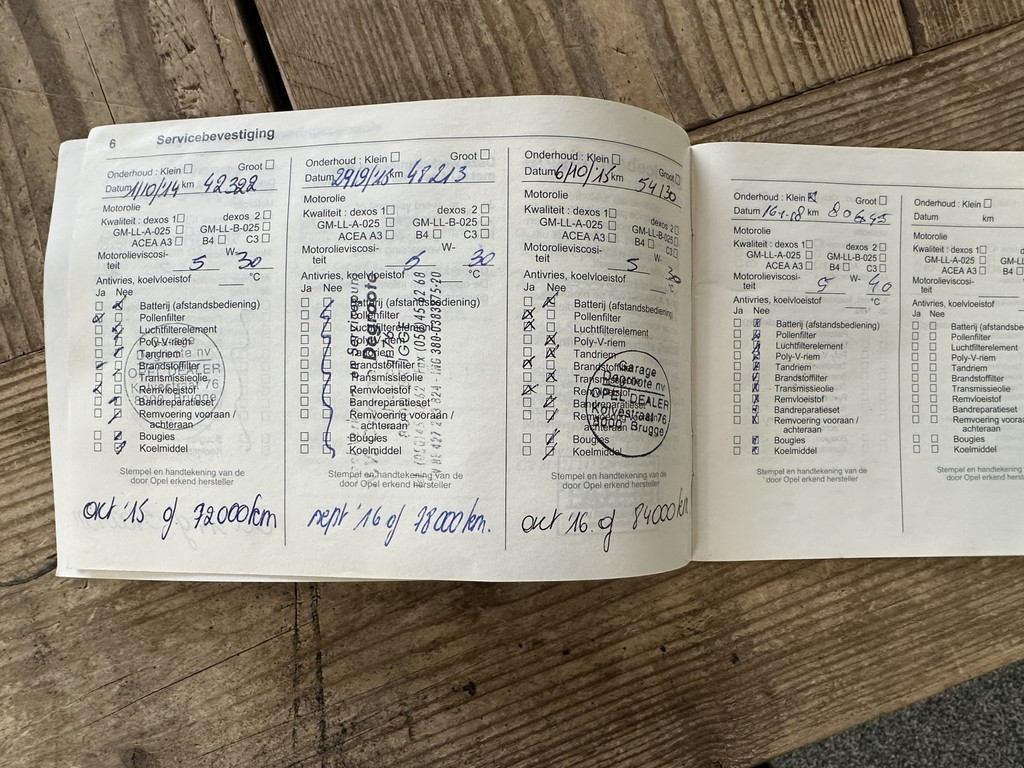 6 Servicebevestiging
Onderhoud : Klein Groot
Datum 1/10/14 km 42392
Motorolie
Kwaliteit : dexos 1 dexos 2
GM-LL-A-025 GM-LL-B-025
ACEA A3 B4 C3
Motorolieviscosi- W-
teit 5 30
Antivries, koelvloeistof °C
Ja Nee
Batterij (afstandsbediening)
Pollenfilter
Luchtfilterelement
Poly-V-riem
Tandriem
Brandstoffilter
Transmissieolie
Remvloeistof
Bandreparatieset
Remvoering vooraan /
achteraan
Bougies
Koelmiddel
OPEL DEALER
8000 Brugge
Stempel en handtekening van de
door Opel erkend hersteller
oct '15 of 72000km
Onderhoud : Klein Groot
Datum 29/9/15 km 48213
Motorolie
Kwaliteit : dexos 1 dexos 2
GM-LL-A-025 GM-LL-B-025
ACEA A3 B4 C3
Motorolieviscosi- W-
teit 5 30
Antivries, koelvloeistof °C
Ja Nee
Batterij (afstandsbediening)
Pollenfilter
Luchtfilterelement
Poly-V-riem
Tandriem
Brandstoffilter
Transmissieolie
Remvloeistof
Bandreparatieset
Remvoering vooraan /
achteraan
Bougies
Koelmiddel
Degroote
Stempel en handtekening van de
door Opel erkend hersteller
sept '16 of 78000km.
Onderhoud : Klein Groot
Datum 6/10/15 km 54130
Motorolie
Kwaliteit : dexos 1 dexos 2
GM-LL-A-025 GM-LL-B-025
ACEA A3 B4 C3
Motorolieviscosi- W-
teit 5 30
Antivries, koelvloeistof °C
Ja Nee
Batterij (afstandsbediening)
Pollenfilter
Luchtfilterelement
Poly-V-riem
Tandriem
Brandstoffilter
Transmissieolie
Remvloeistof
Bandreparatieset
Remvoering vooraan /
achteraan
Bougies
Koelmiddel
Garage
Degroote nv
OPEL DEALER
Kolvestraat 76
8000 Brugge
Stempel en handtekening van de
door Opel erkend hersteller
oct '16 of 84000km
Onderhoud : Klein Groot
Datum km
Motorolie
Kwaliteit : dexos 1 dexos 2
GM-LL-A-025 GM-LL-B-025
ACEA A3 B4 C3
Motorolieviscosi- W-
teit 5 40
Antivries, koelvloeistof °C
Ja Nee
Batterij (afstandsbediening)
Pollenfilter
Luchtfilterelement
Poly-V-riem
Tandriem
Brandstoffilter
Transmissieolie
Remvloeistof
Bandreparatieset
Remvoering vooraan /
achteraan
Bougies
Koelmiddel
Stempel en handtekening van de
door Opel erkend hersteller
Onderhoud : Klein
Datum km
Motorolie
Kwaliteit : dexos 1
GM-LL-A-025 GM-LL
ACEA A3 B4
Motorolieviscosi-
teit
Antivries, koelvloeistof
Ja Nee
Batterij (afstandsbe
Pollenfilter
Luchtfilterelement
Poly-V-riem
Tandriem
Brandstoffilter
Transmissieolie
Remvloeistof
Bandreparatieset
Remvoering voora
achteraan
Bougies
Koelmiddel
Stempel en handtekening
door Opel erkend herste